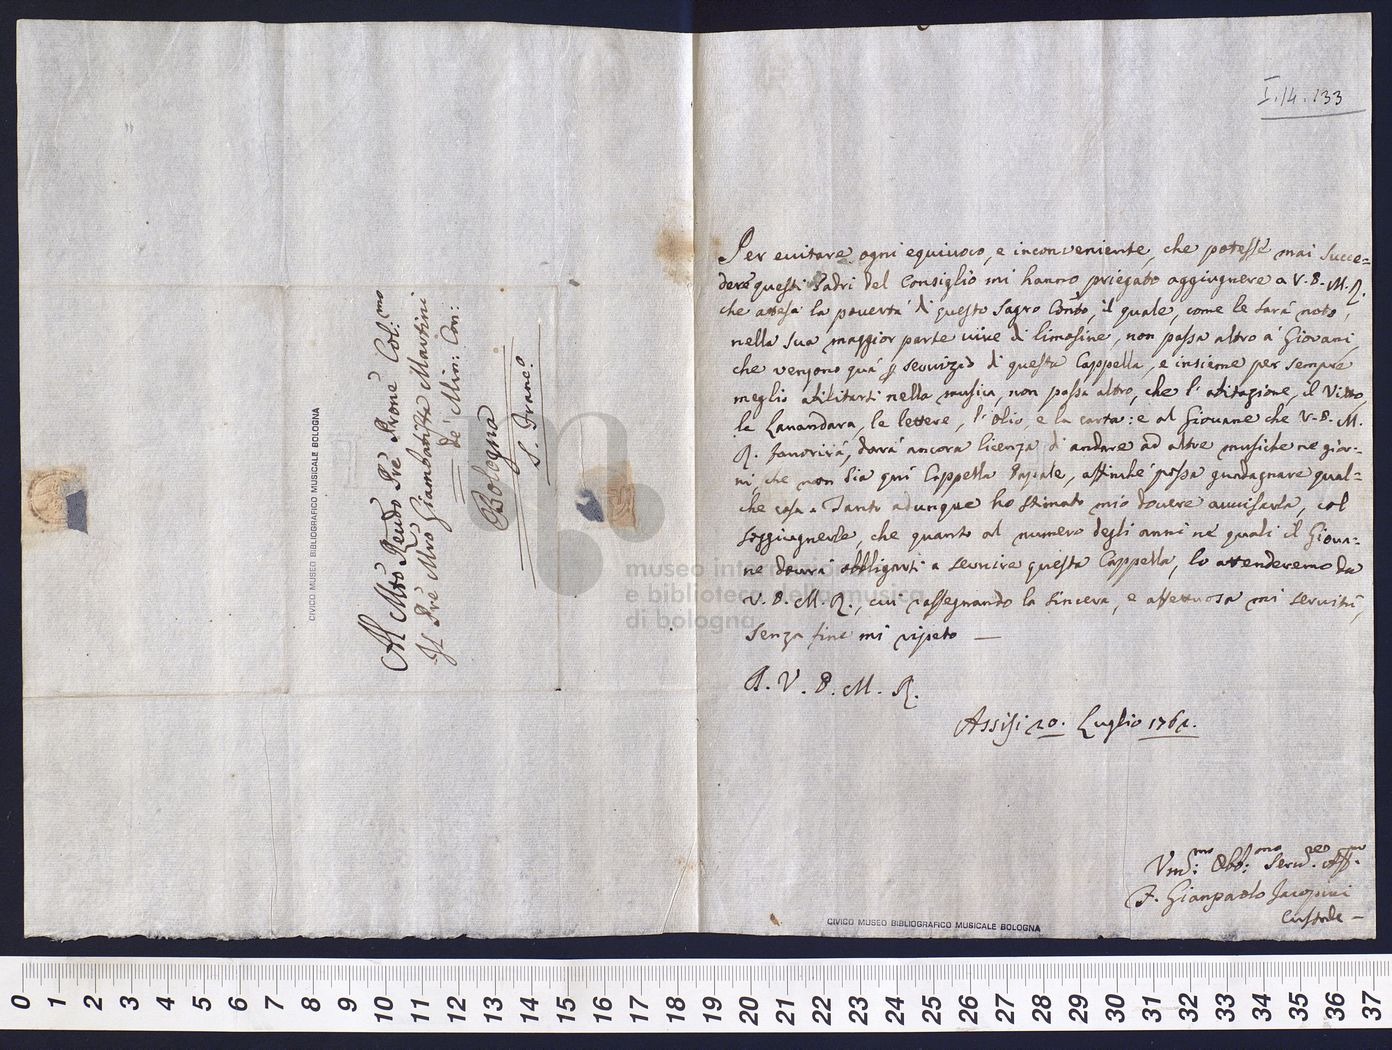 I.14.133
Per euitare ogni equiuoco, e inconueniente, che potesse mai succe=
dere questi Padri del Consiglio mi hanno priegato aggiugnere a V. P. M. R.
che attesa la pouertà di questo Sagro Conto, il quale, come le sarà noto,
nella sua maggior parte uiue di limosine, non passa altro a' Giouani,
che vengono quà p seruizio di questa Cappella, e insieme per sempre
meglio abilitarsi nella musica, non passa altro, che l'abitazione, il Vitto,
la Lauandara, le lettere, l'olio, e la carta: e al Giouane che V. P. M.
R. fauorirà, darà ancora licenza di andare ad altre musiche ne' gior=
ni che non sia quì Cappella Papale, affinchè possa guadagnare qual=
che cosa. Tanto adunque ho stimato mio douere auuisarla, col
soggiugnerle, che quanto al numero degli anni ne' quali il Gioua=
ne dourà obbligarsi a seruire questa Cappella, lo attenderemo da
V. P. M. R., cui rassegnando la sincera, e affettuosa mi seruitù,
senza fine mi ripeto —
A. V. P. M. R.
Assisi 20. Luglio 1762.
Vmo: Obbmo: Seru. Aff.
F. Gianpaolo Jacopini
Custode —
CIVICO MUSEO BIBLIOGRAFICO MUSICALE BOLOGNA
Al Mto Rendo Pre Prone Col:mo
Il Pre Mro Giambattista Martini
de' Min: Con:
Bologna
S. Franc.o
CIVICO MUSEO BIBLIOGRAFICO MUSICALE BOLOGNA
museo internazionale
e biblioteca della musica
di bologna
0 1 2 3 4 5 6 7 8 9 10 11 12 13 14 15 16 17 18 19 20 21 22 23 24 25 26 27 28 29 30 31 32 33 34 35 36 37